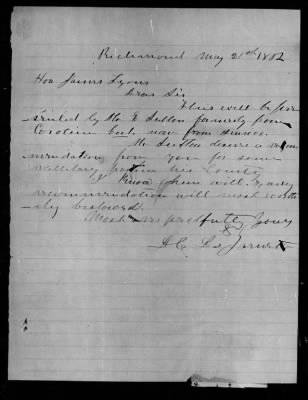 Richmond May 21st 1862
Hon James Lyons
Dear Sir
This will be pre-
sented by Mr E Sutton formerly from
Caroline but now from
Mr Sutton desires a recom
mendation from you for some
military position his County
I know him well & any
recommendation will most worth
ily bestowed.
Most respectfully yours
D C De Jarnett